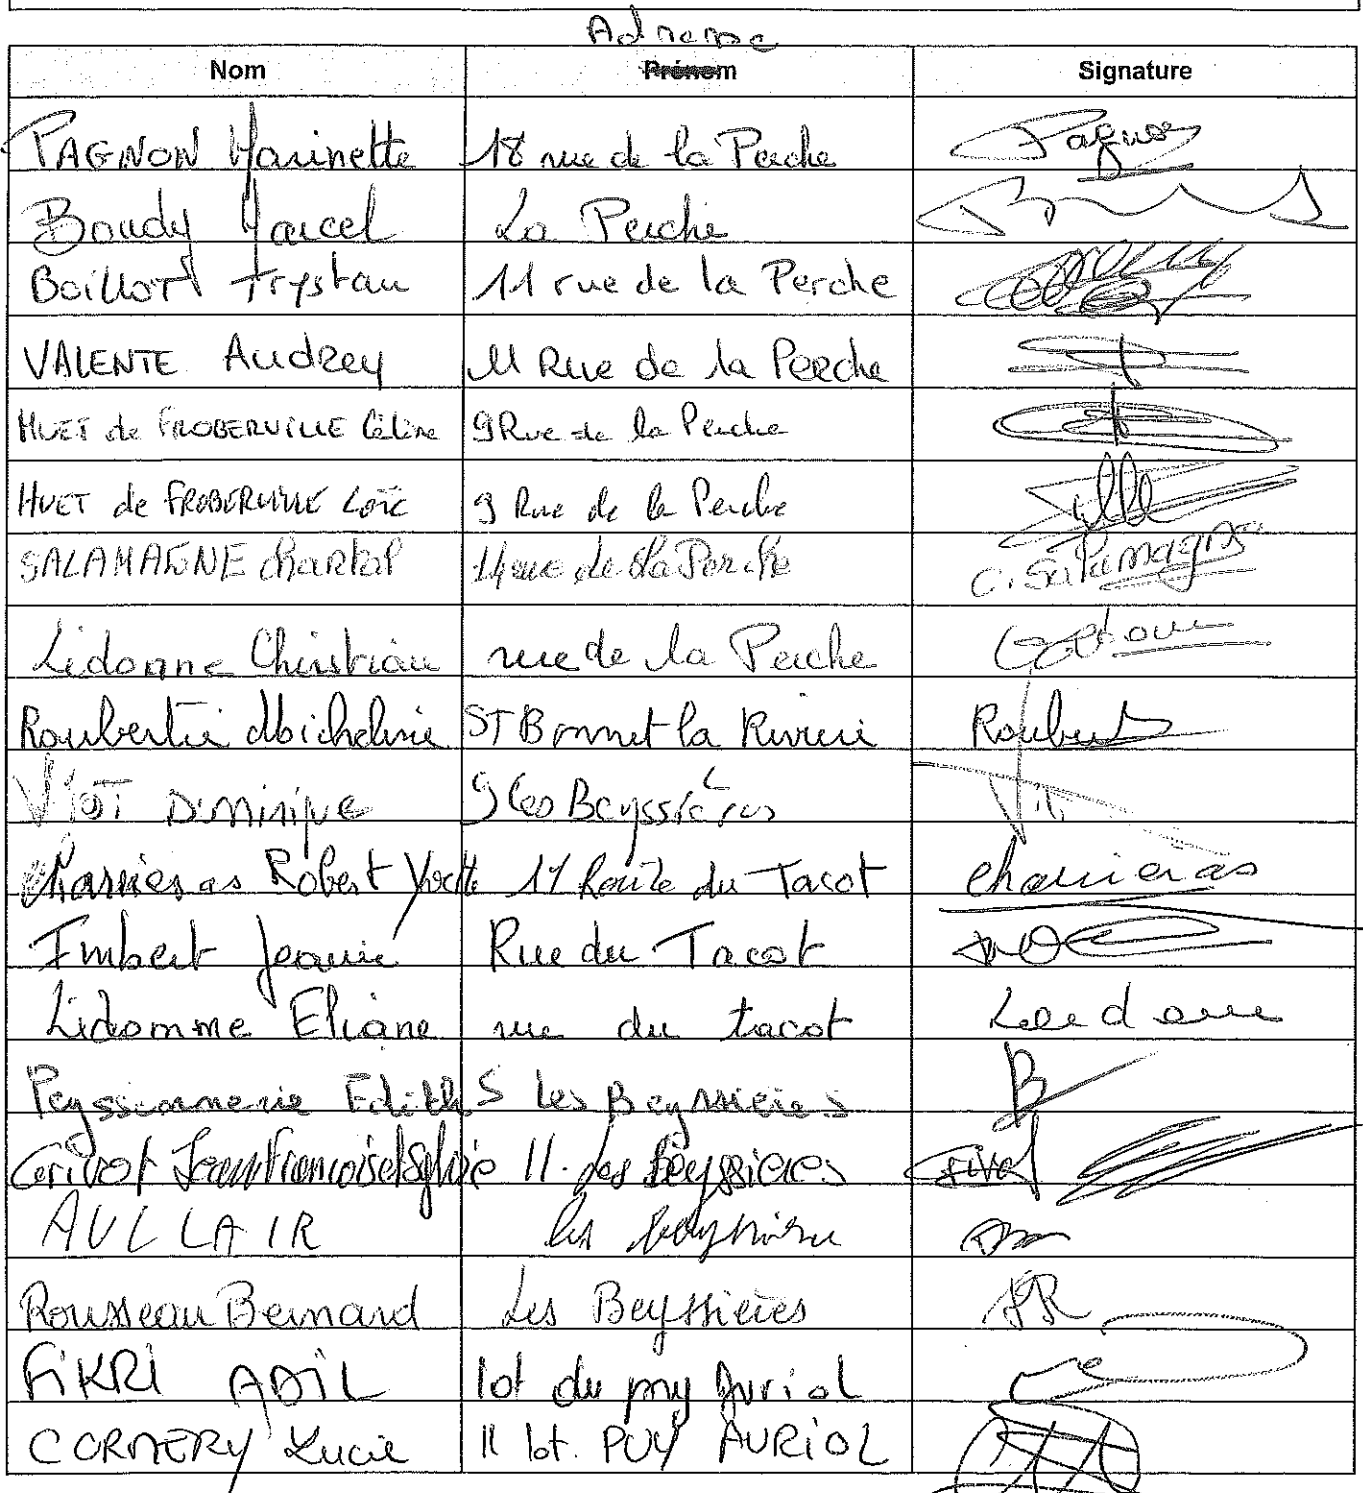 Adresse
Nom Prénom Signature
PAGNON Marinette 18 rue de la Perche Pagnon
Boudy Marcel La Perche
BoilloT Trystan 11 rue de la Perche
VALENTE Audrey 11 Rue de la Perche
HUET de FROBERVILLE Céline 9 Rue de la Perche
HUET de FROBERVILLE Loïc 9 Rue de la Perche
SALAMAGNE Chantal 14 rue de la Perche C. Salamagne
Lidonne Christian rue de la Perche
Roubertie Micheline ST Bonnet la Riviere Roubert
VIOT Dominique 9 les Beyssières
Charriéras Robert Yvette 11 Route du Tacot Charrieras
Imbert Jeanine Rue du Tacot
Lidomme Eliane rue du tacot
Peyssonnerie Edith 5 les Beyssières B
Grivot Jean Francois et Sylvie 11. les Beyssieres Grivot
AULLAIR les beyssiere
Rousseau Bernard Les Beyssieres
FIKRI ADIL lot du puy Auriol
CORNERY Lucie 11 lot. PUY AURIOL